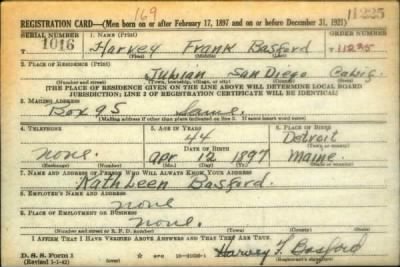 169
11225
REGISTRATION CARD—(Men born on or after February 17, 1897 and on or before December 31, 1921)
SERIAL NUMBER 1. NAME (Print) ORDER NUMBER
1016 Harvey Frank Basford 11225
(First) (Middle) (Last)
2. PLACE OF RESIDENCE (Print)
Julian San Diego Calif.
(Number and street) (Town, township, village, or city) (County) (State)
[THE PLACE OF RESIDENCE GIVEN ON THE LINE ABOVE WILL DETERMINE LOCAL BOARD
JURISDICTION; LINE 2 OF REGISTRATION CERTIFICATE WILL BE IDENTICAL]
3. MAILING ADDRESS
Box 95 Same.
[Mailing address if other than place indicated on line 2. If same insert word same]
4. TELEPHONE 5. AGE IN YEARS 6. PLACE OF BIRTH
44 Detroit
DATE OF BIRTH (Town or county)
none. Apr 12 1897 Maine.
(Exchange) (Number) (Mo.) (Day) (Yr.) (State or country)
7. NAME AND ADDRESS OF PERSON WHO WILL ALWAYS KNOW YOUR ADDRESS
Kathleen Basford.
8. EMPLOYER'S NAME AND ADDRESS
none
9. PLACE OF EMPLOYMENT OR BUSINESS
none.
(Number and street or R. F. D. number) (Town) (County) (State)
I AFFIRM THAT I HAVE VERIFIED ABOVE ANSWERS AND THAT THEY ARE TRUE.
D. S. S. Form 1
(Revised 1-1-42) (over)
Harvey F Basford
(Registrant's signature)